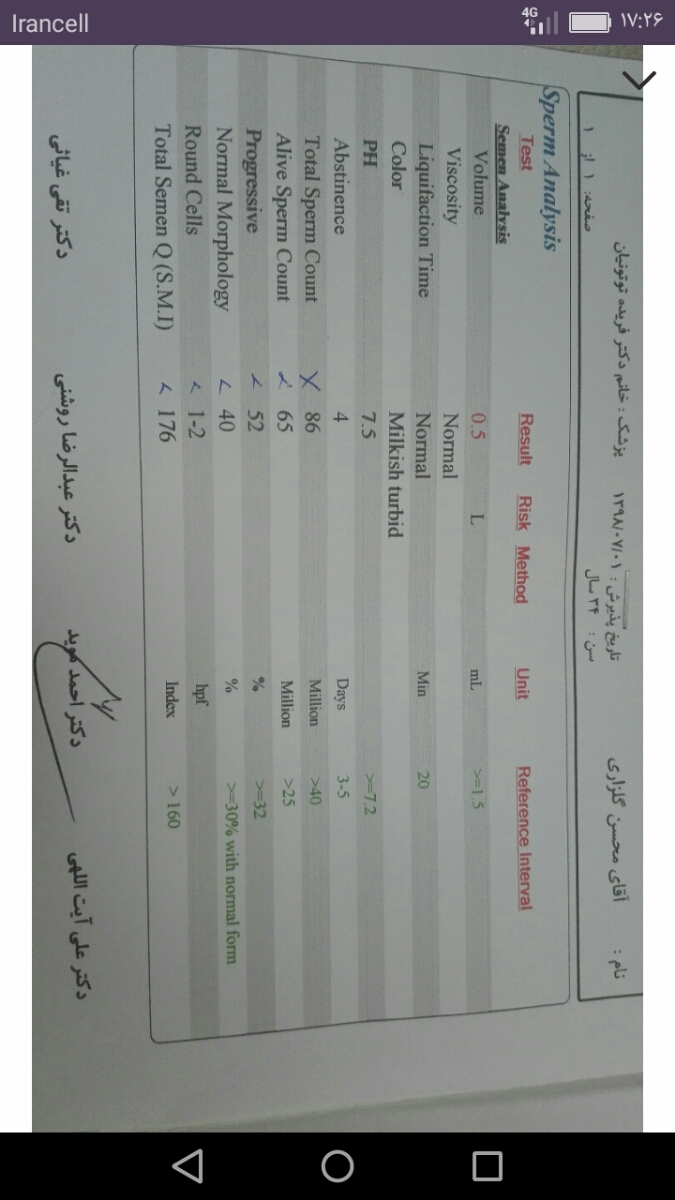 Irancell
4G
۱۷:۲۶
نام : آقای محسن گلزاری
تاریخ پذیرش : ۱۳۹۸/۰۷/۰۱
سن : ۳۴ سال
پزشک : خانم دکتر فریده توتونیان
صفحه: ۱ از ۱
Sperm Analysis
Test Result Risk Method Unit Reference Interval
Semen Analysis
Volume 0.5 L mL >=1.5
Viscosity Normal
Liquifaction Time Normal Min 20
Color Milkish turbid
PH 7.5 >=7.2
Abstinence 4 Days 3-5
Total Sperm Count 86 Million >40
Alive Sperm Count 65 Million >25
Progressive 52 % >=32
Normal Morphology 40 % >=30% with normal form
Round Cells 1-2 hpf
Total Semen Q (S.M.I) 176 Index > 160
دکتر علی آیت اللهی دکتر احمد موید دکتر عبدالرضا روشنی دکتر تقی غیاثی